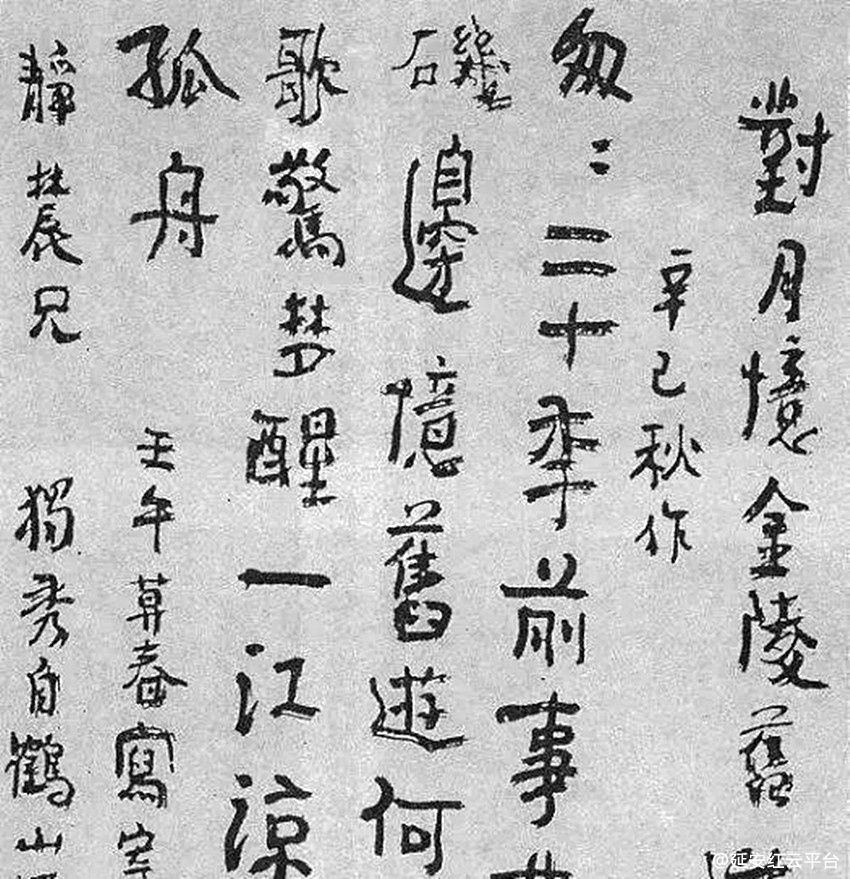 對月憶金陵舊
辛巳秋作
匆〻二十秊前事
磯邊憶舊遊何
歌驚梦醒一江涼
孤舟
壬午莫春寫寄
靜農兄
獨秀自鶴山
@延安红云平台